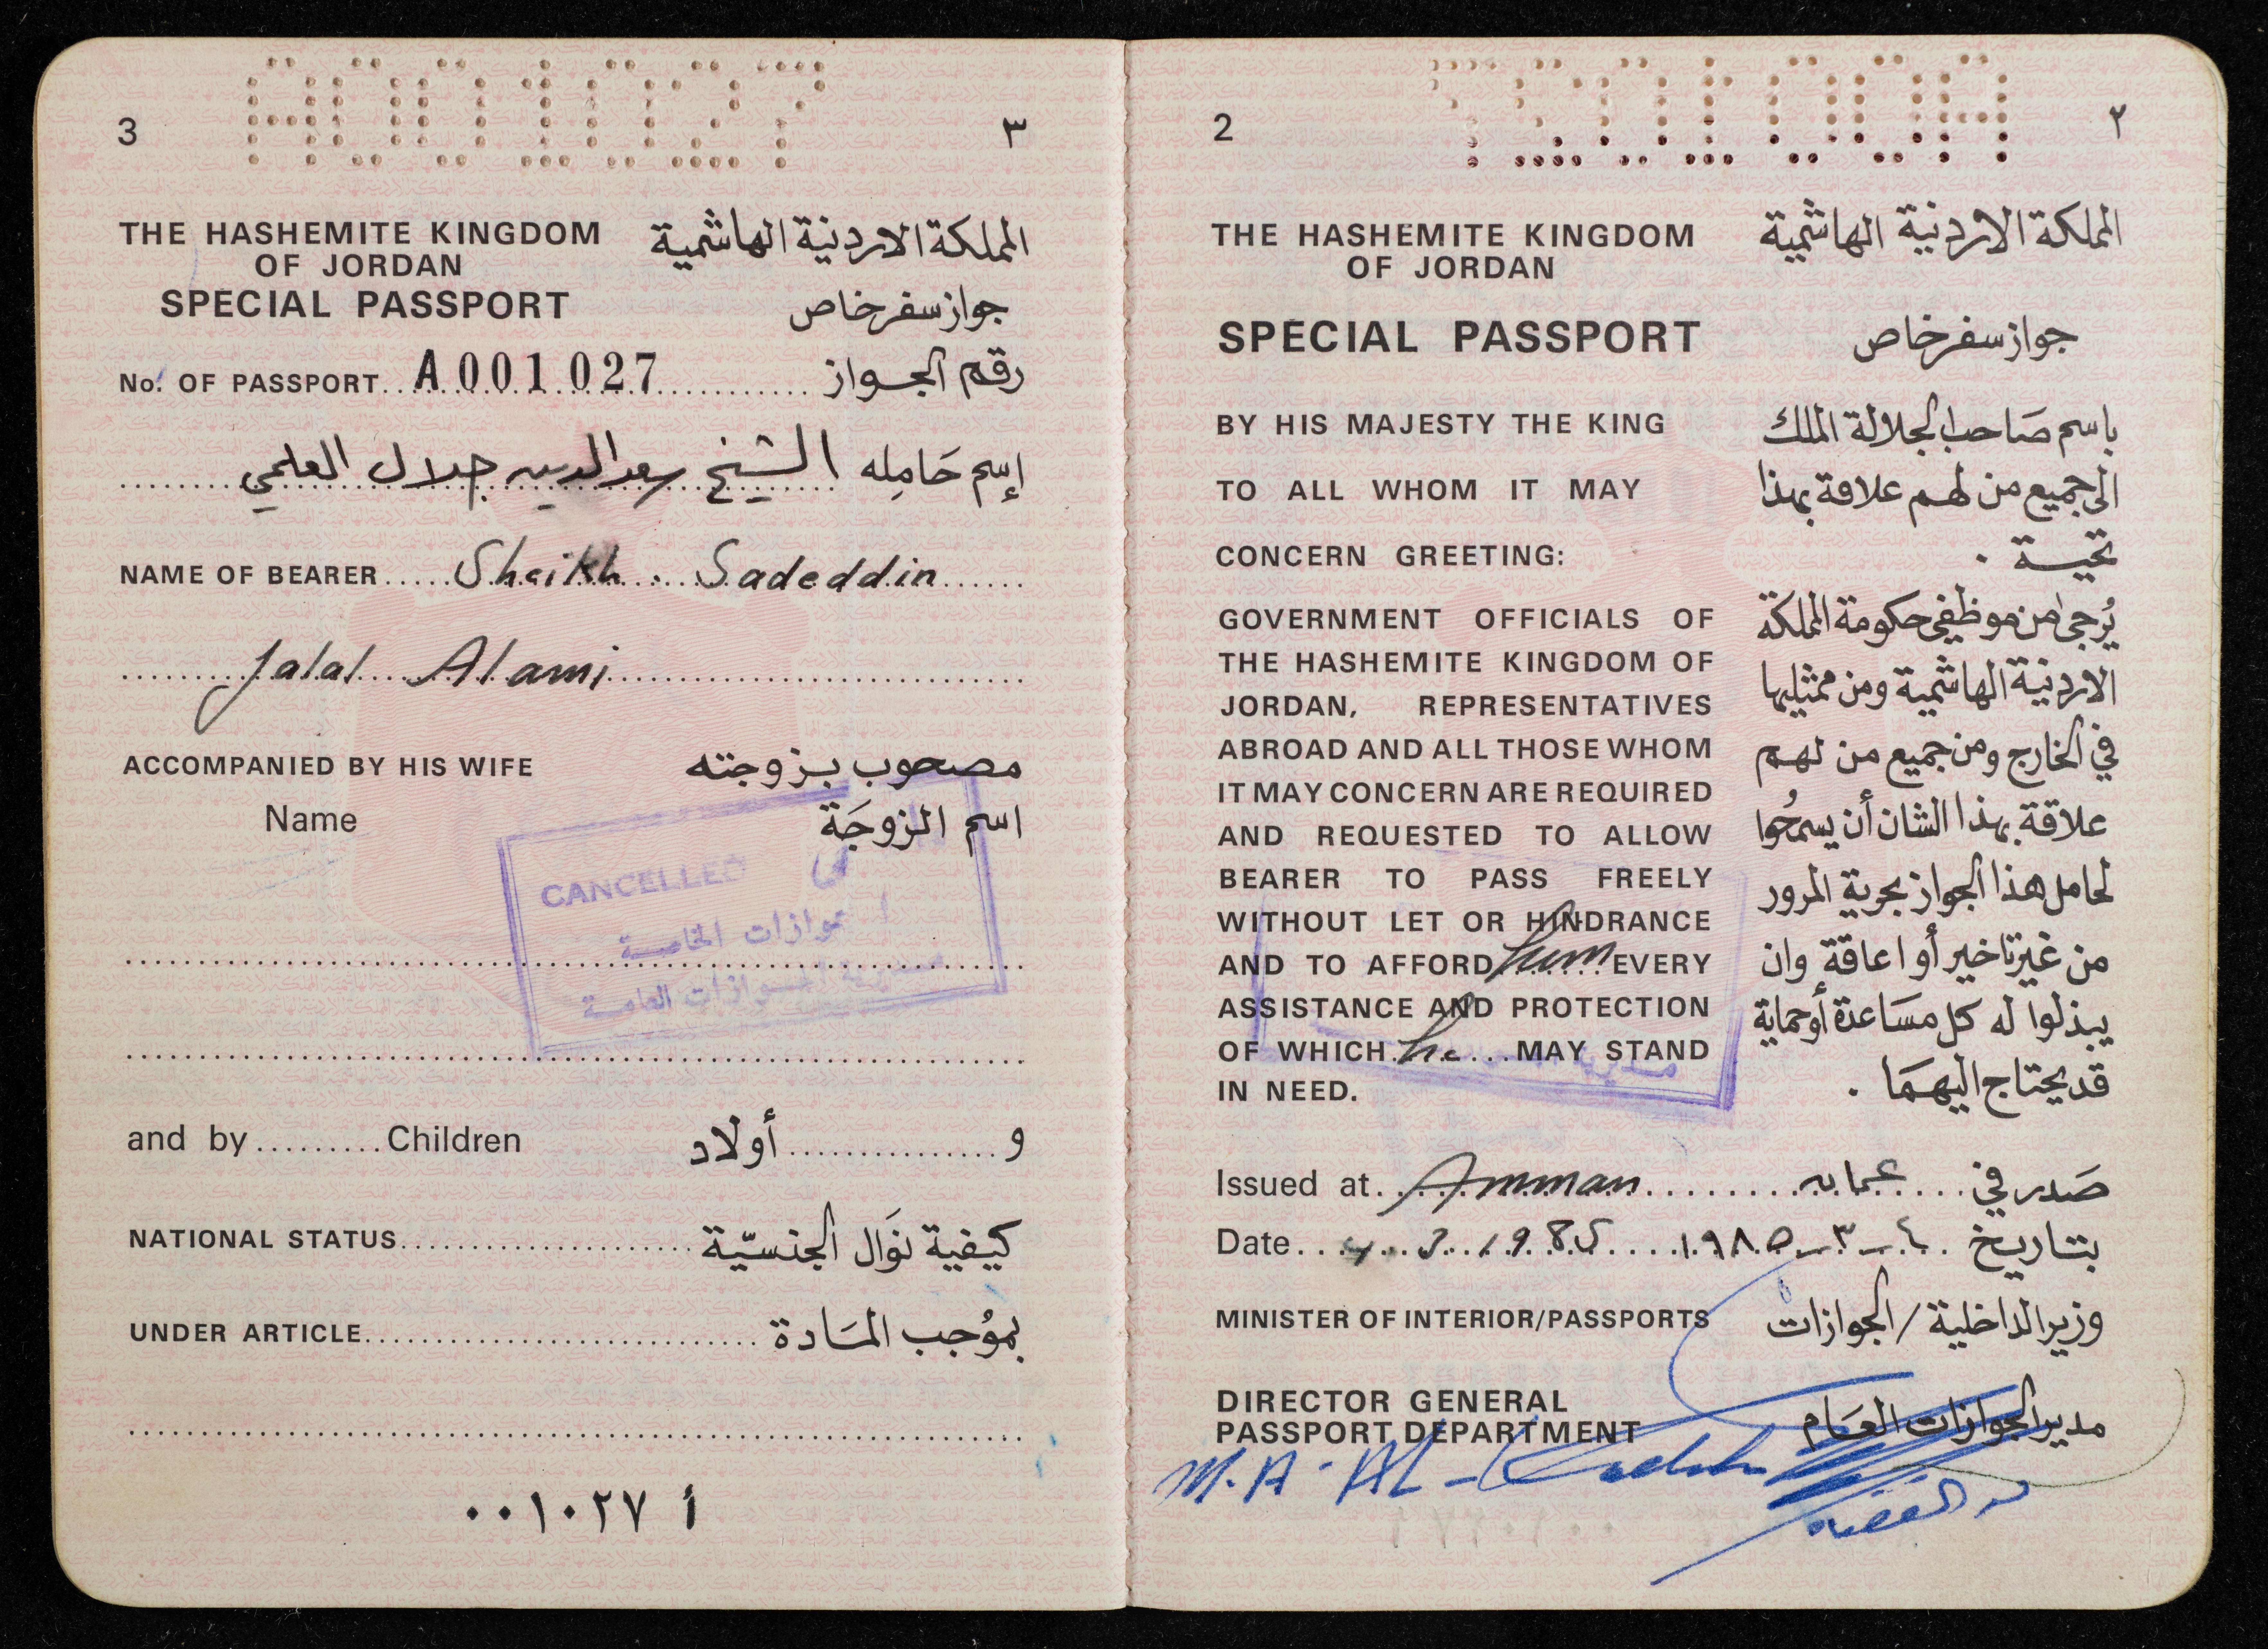 A001027
3 ٣
THE HASHEMITE KINGDOM
OF JORDAN
المملكة الاردنية الهاشمية
SPECIAL PASSPORT جواز سفر خاص
No. OF PASSPORT A001027 رقم الجواز
إسم حَامِله الشيخ سعد الدين جلال العلمي
NAME OF BEARER Sheikh Sadeddin
Jalal Alami
ACCOMPANIED BY HIS WIFE مصحوب بزوجته
Name اسم الزوجَة
CANCELLED
الخاصة
العامة
and by ......... Children و ............... أولاد
NATIONAL STATUS كيفية نَوَال الجنسيّة
UNDER ARTICLE بموُجب المَادة
أ ٠٠١٠٢٧
A001027
2 ٢
THE HASHEMITE KINGDOM
OF JORDAN
المملكة الاردنية الهاشمية
SPECIAL PASSPORT جواز سفر خاص
BY HIS MAJESTY THE KING
TO ALL WHOM IT MAY
CONCERN GREETING:
GOVERNMENT OFFICIALS OF
THE HASHEMITE KINGDOM OF
JORDAN, REPRESENTATIVES
ABROAD AND ALL THOSE WHOM
IT MAY CONCERN ARE REQUIRED
AND REQUESTED TO ALLOW
BEARER TO PASS FREELY
WITHOUT LET OR HINDRANCE
AND TO AFFORD him EVERY
ASSISTANCE AND PROTECTION
OF WHICH he MAY STAND
IN NEED.
باسم صَاحب الجلالة الملك
الى جميع من لهم علاقة بهذا
تحية .
يُرجى من موظفي حكومة المملكة
الاردنية الهاشمية ومن ممثليها
في الخارج ومن جميع من لهم
علاقة بهذا الشان أن يسمحُوا
لحامل هذا الجواز بحرية المرور
من غير تاخير أو اعاقة وان
يبذلوا له كل مسَاعدة أو حماية
قد يحتاج اليهمَا .
Issued at Amman عمان صَدر في
Date 4 3 1985 ١٩٨٥ - ٣ - ٤ بتاريخ
MINISTER OF INTERIOR/PASSPORTS وزير الداخلية / الجوازات
DIRECTOR GENERAL
PASSPORT DEPARTMENT
مدير الجوازات العَام
M. A. AL-